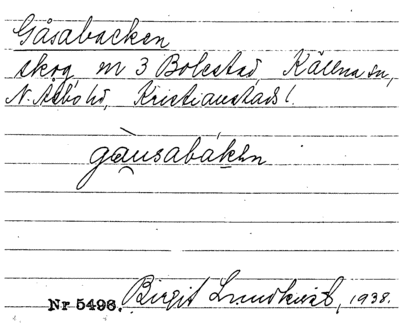 Gåsabacken
skog, m 3 Bolestad, Källna sn,
N. Åsbo hd, Kristianstads l.
gàusabáken
Nr 5496. Birgit Lundkvist, 1938.